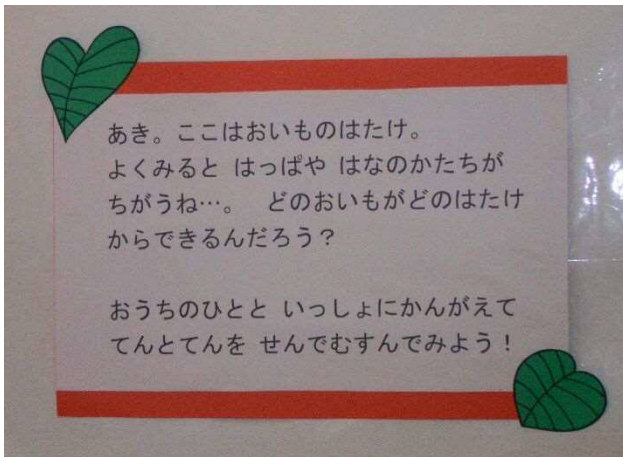 あき。ここはおいものはたけ。
よくみると はっぱや はなのかたちが
ちがうね…。 どのおいもがどのはたけ
からできるんだろう？
おうちのひとと いっしょにかんがえて
てんとてんを せんでむすんでみよう！